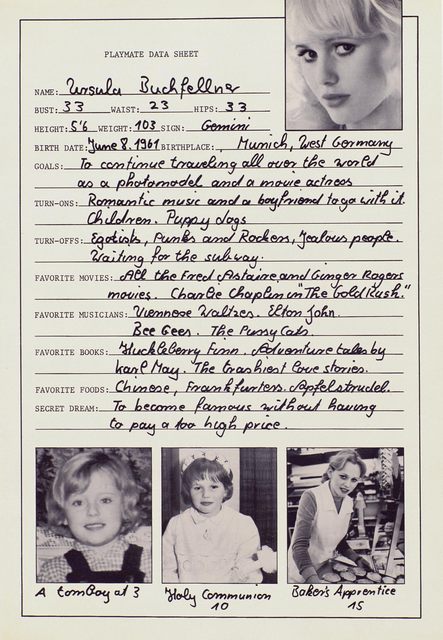 PLAYMATE DATA SHEET
NAME: Ursula Buchfellner
BUST: 33 WAIST: 23 HIPS: 33
HEIGHT: 5'6 WEIGHT: 103 SIGN: Gemini
BIRTH DATE: June 8, 1961 BIRTHPLACE: Munich, West Germany
GOALS: To continue traveling all over the world
as a photomodel and a movie actress
TURN-ONS: Romantic music and a boyfriend to go with it.
Children. Puppy dogs
TURN-OFFS: Egotists, Punks and Rockers, Jealous people.
Waiting for the subway.
FAVORITE MOVIES: All the Fred Astaire and Ginger Rogers
movies. Charlie Chaplin in "The Gold Rush."
FAVORITE MUSICIANS: Viennese Waltzes. Elton John.
Bee Gees. The Pussy Cats
FAVORITE BOOKS: Huckleberry Finn. Adventure tales by
Karl May. The trashiest love stories.
FAVORITE FOODS: Chinese, Frankfurters. Apfelstrudel.
SECRET DREAM: To become famous without having
to pay a too high price.
A tomboy at 3
Holy Communion
10
Baker's Apprentice
15